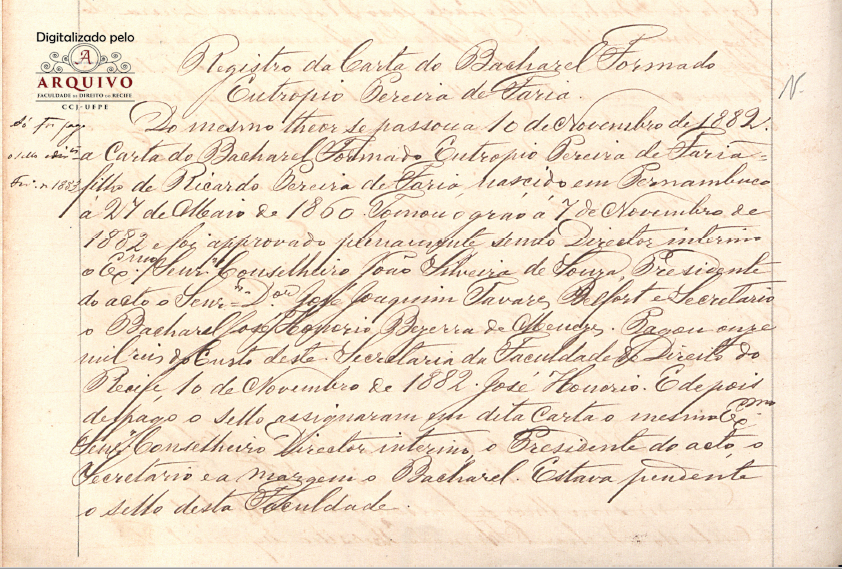 Digitalizado pelo
A
ARQUIVO
FACULDADE DE DIREITO DO RECIFE
CCJ-UFPE
Registro da Carta do Bacharel Formado
Eutropio Pereira de Faria.
N.
Só foi pag.
o sello
Do mesmo theor se passou a 10 de Novembro de 1882.
a Carta do Bacharel Formado Eutropio Pereira de Faria =
filho de Ricardo Pereira de Faria, nascido em Pernambuco
á 27 de Maio de 1860. Tomou o gráo á 7 de Novembro de
1882 e foi approvado plenamente sendo Director interino
o Exmo. Senr. Conselheiro João Silveira de Souza, Presidente
do acto o Senr. Dor. José Joaquim Tavares Belfort e Secretario
o Bacharel José Honorio Bezerra de Menezes. Pagou onze
mil reis do Custo deste. Secretaria da Faculdade de Direito do
Recife, 10 de Novembro de 1882. José Honorio. E depois
de pago o sello assignaram em dita Carta o mesmo Exmo.
Senr. Conselheiro Director interino, o Presidente do acto, o
Secretario e a margem o Bacharel. Estava pendente
o sello desta Faculdade.